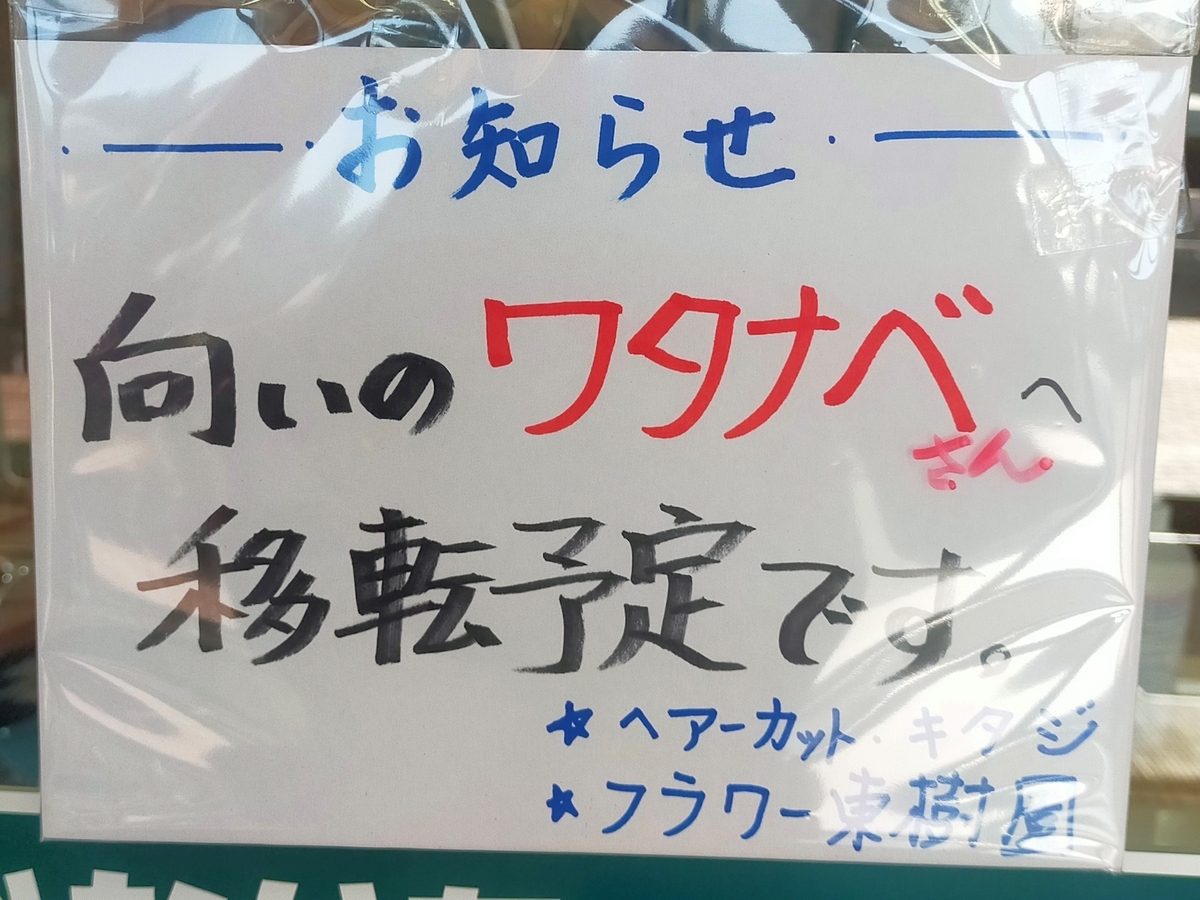 ・―― ・お知らせ・ ――・
向いのワタナベさんへ
移転予定です。
★ヘアーカット・キタジ
★フラワー東樹園